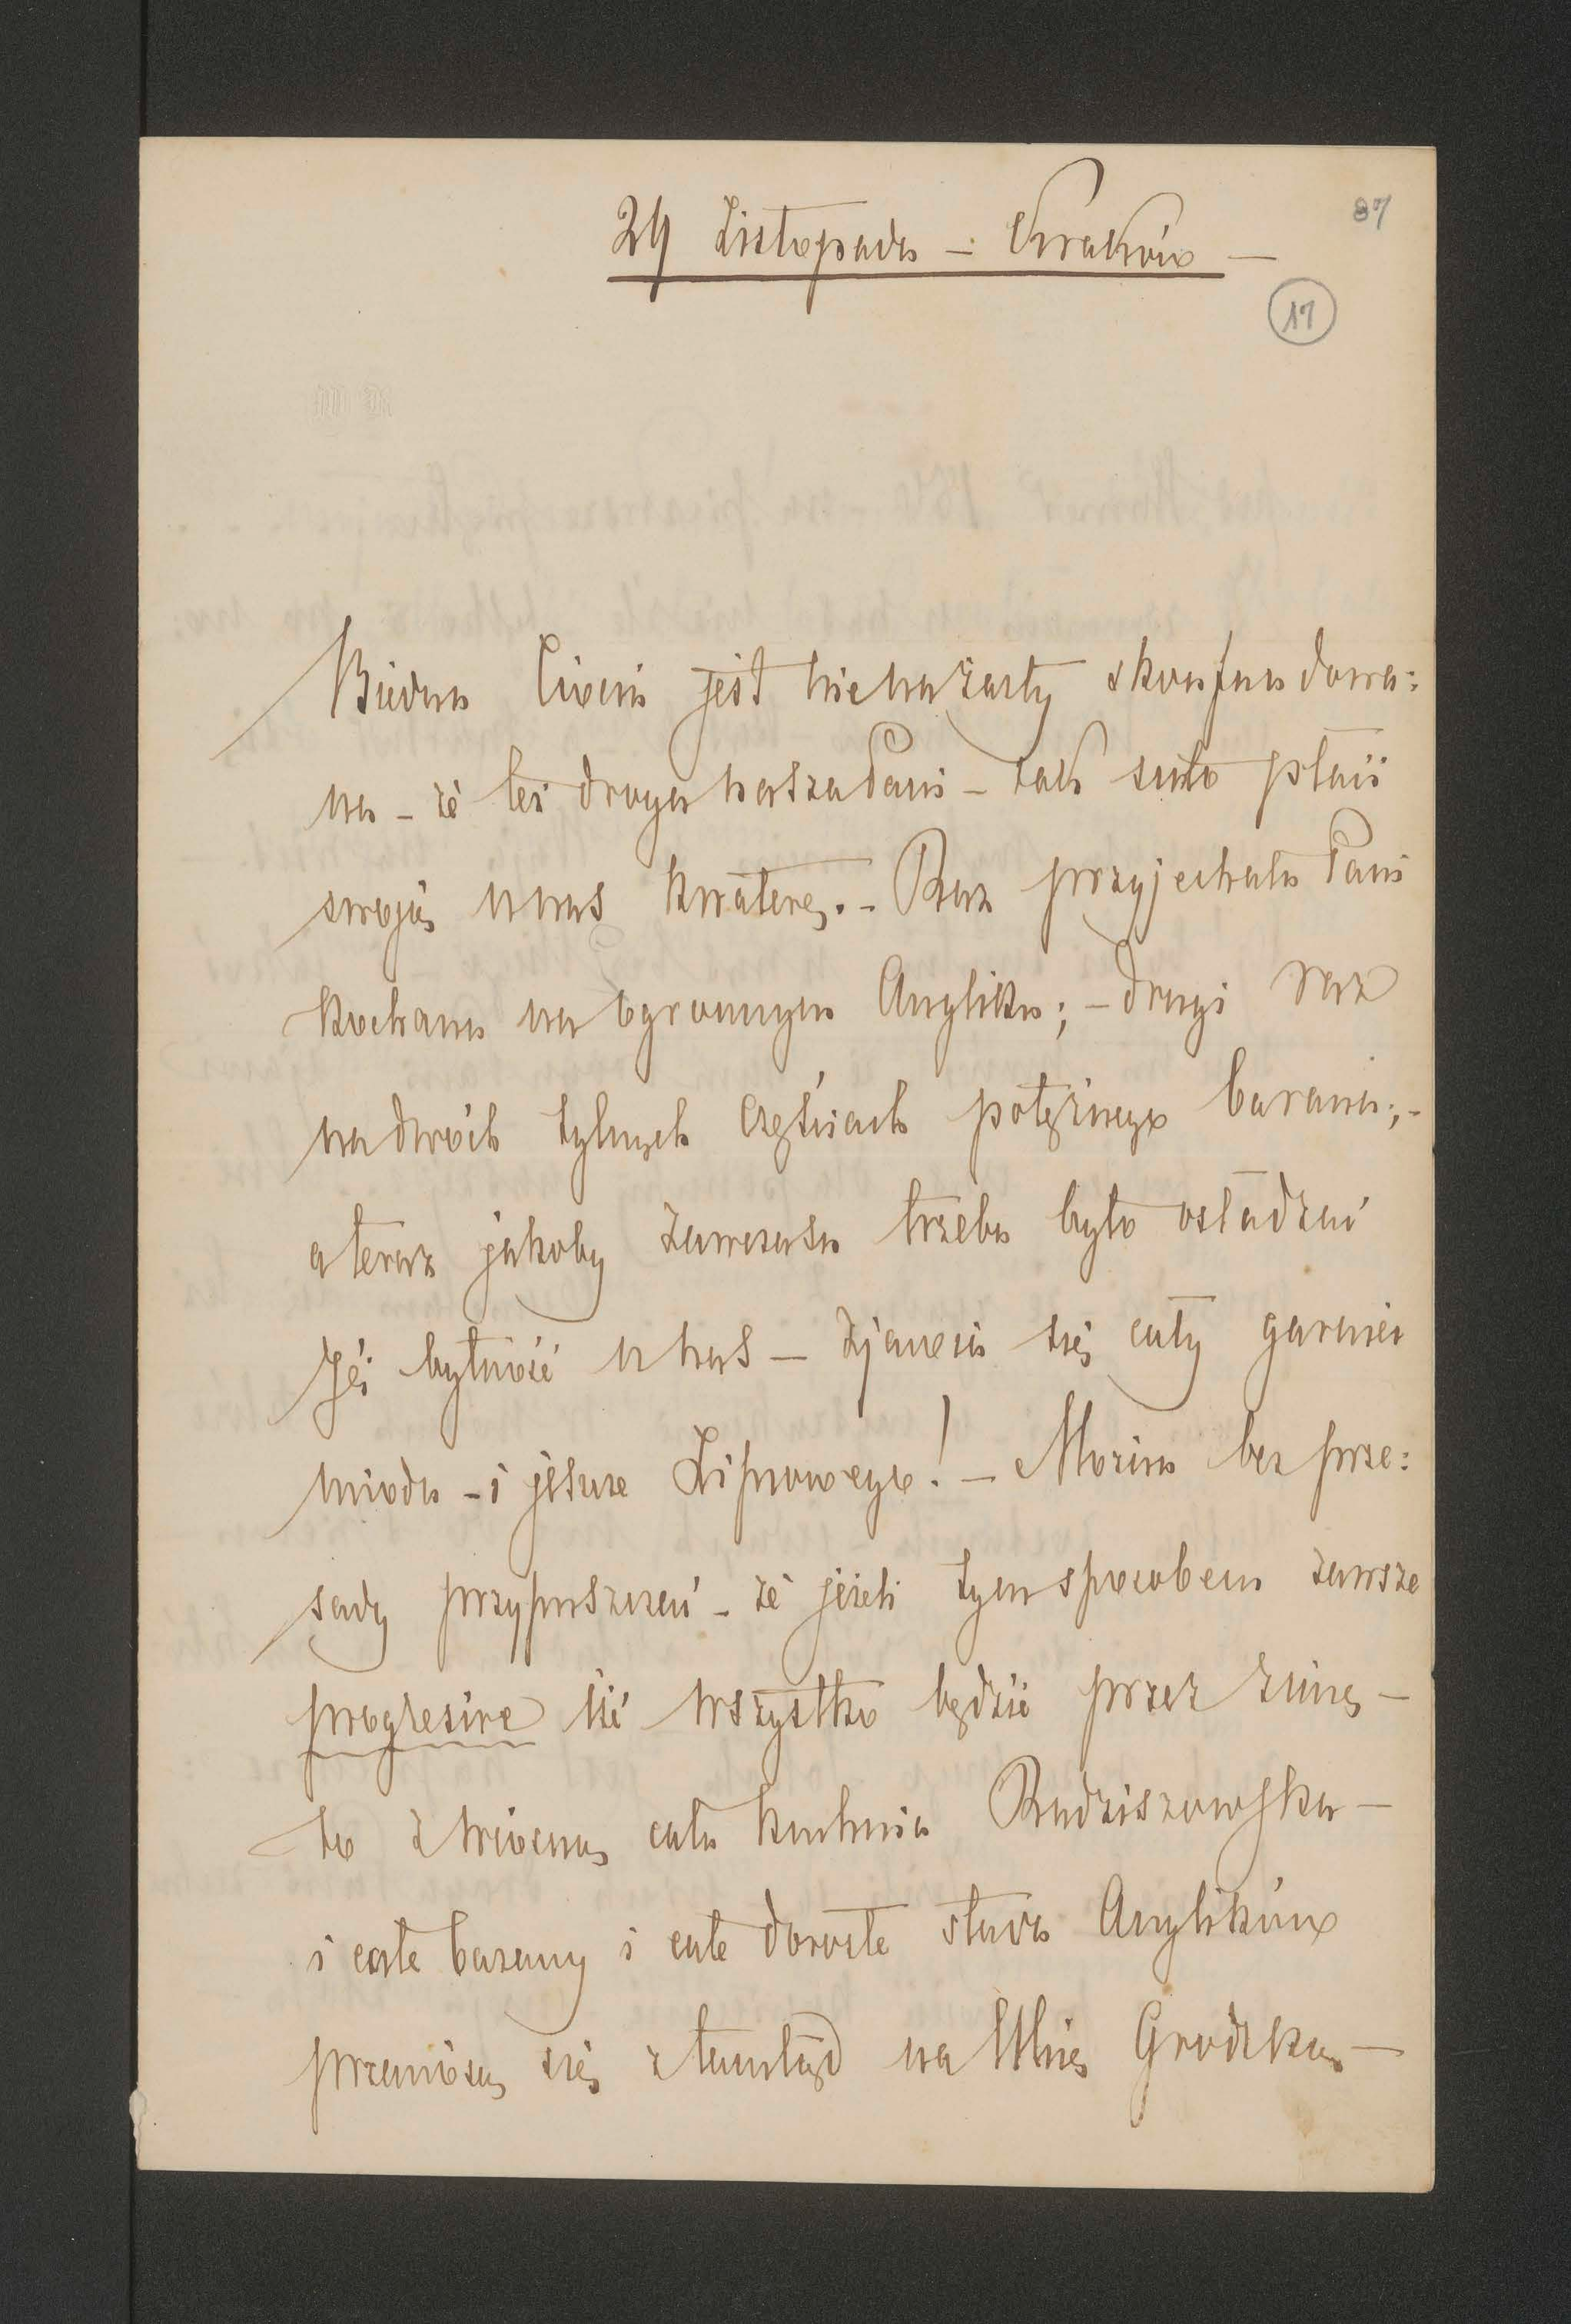 87
24 Listopada – Kraków –
17
Biedna Ciocia jest nienażarty skonfundowa:
na – że też droga nasza Pani – tak suto płaci
swoją u nas kwaterę. – Raz przyjechała Pani
kochana na ogromnym Angliku; – drugi raz
na dwóch tylnych częściach potężnego barana; –
a teraz jakoby zawczasu trzeba było osładzać
Jéj bytność u nas – zjawia się cały garniec
miodu – i jeszcze Lipcowego! – Można bez prze:
sady przypuszczać – że jeżeli tym sposobem zawsze
progresive iść wszystko będzie przez zimę –
to z wiosną cała kuchnia Radziszowska –
i całe barany i całe dorosłe stada Anglików
przeniosą się ztamtąd na Ulicę Grodzką –